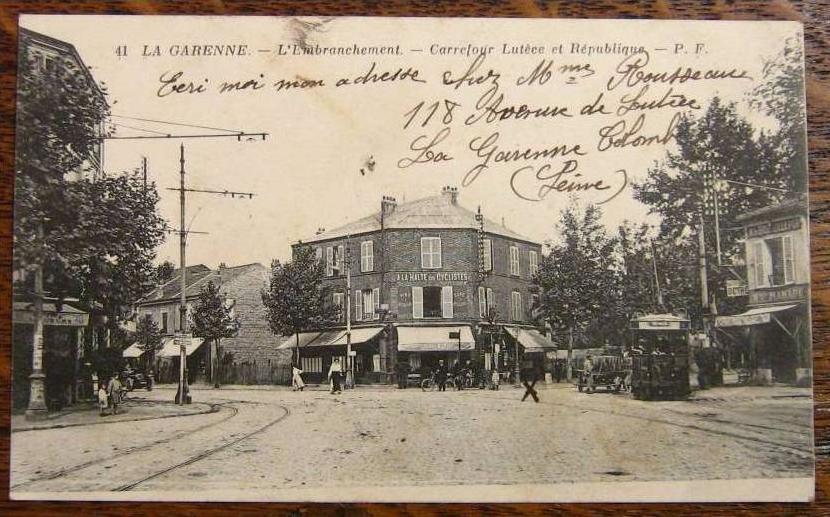 41 LA GARENNE. — L'Embranchement. — Carrefour Lutèce et République — P. F.
Ecri moi mon adresse chez Mme Rousseaux
118 Avenue de Lutèce
La Garenne Colomb
(Seine)
A LA HALTE DES CYCLISTES
X